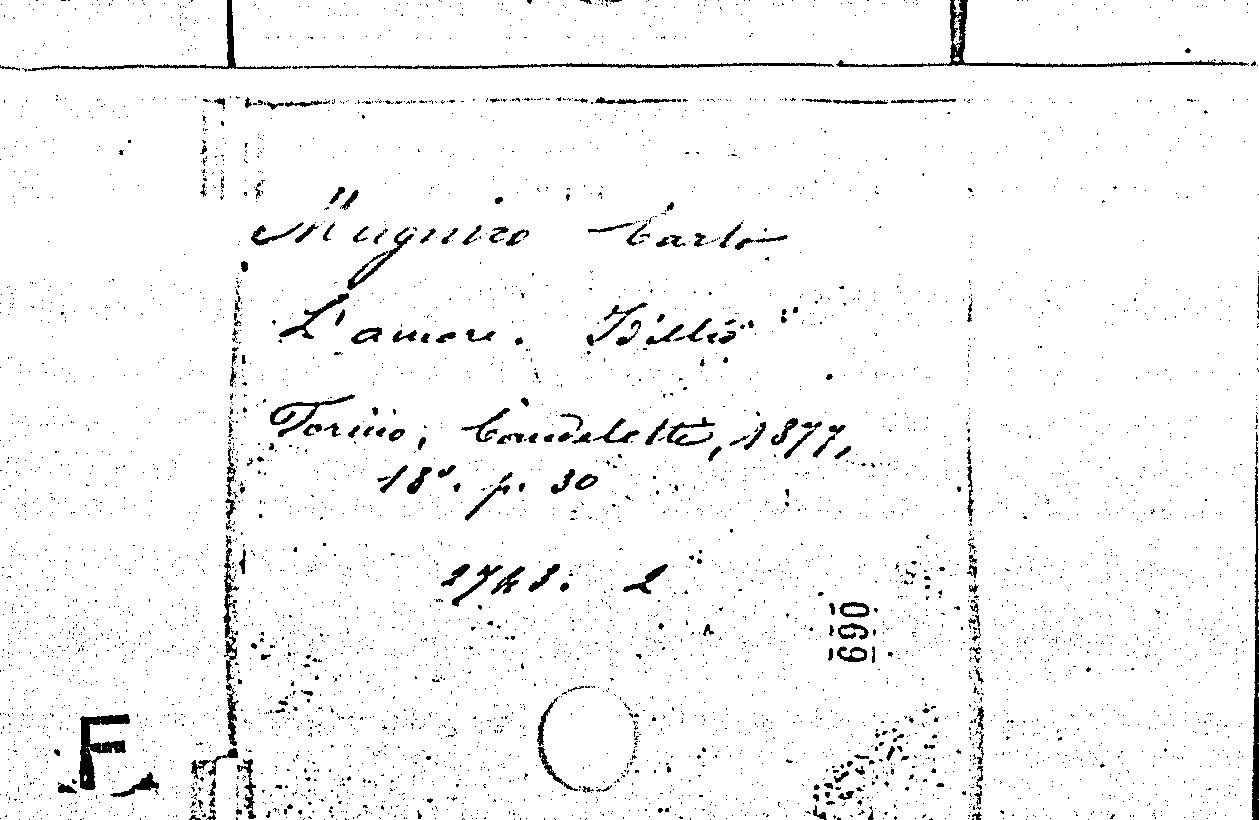 Carlo
L'amore. Idillio
Torino, Candeletti, 1877,
18º. p. 30
2743. 2
690
F